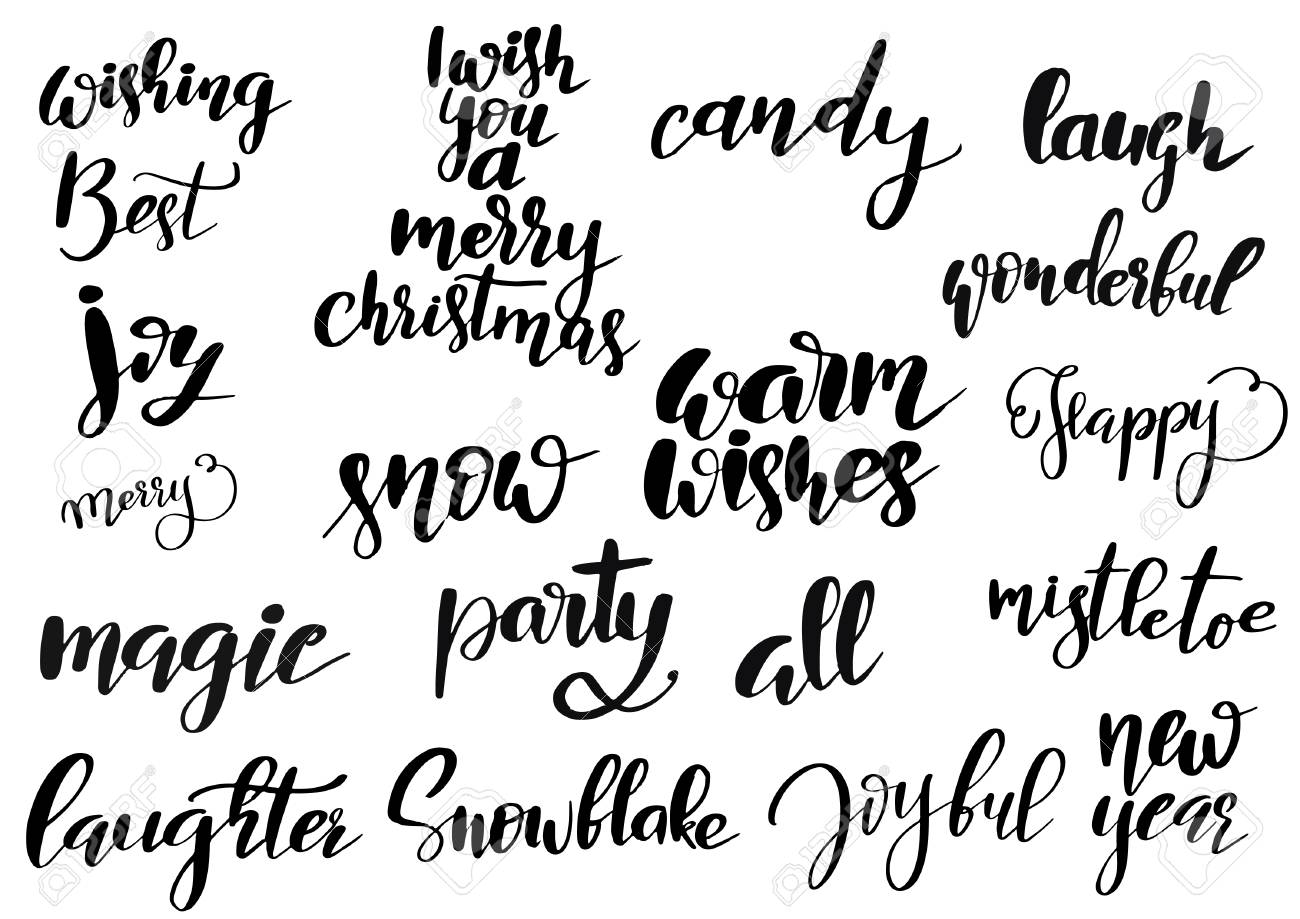 wishing
Best
joy
merry
I wish
you
a
merry
christmas
candy
laugh
wonderful
warm
wishes
Happy
snow
magic
party
all
mistletoe
laughter
Snowflake
Joyful
new
year
123RF